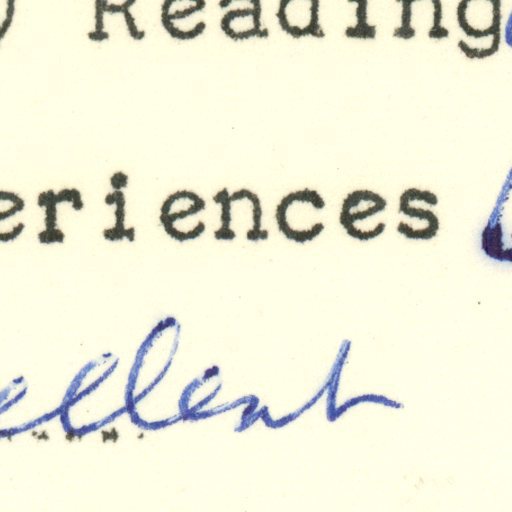 ) Reading
eriences
ellent